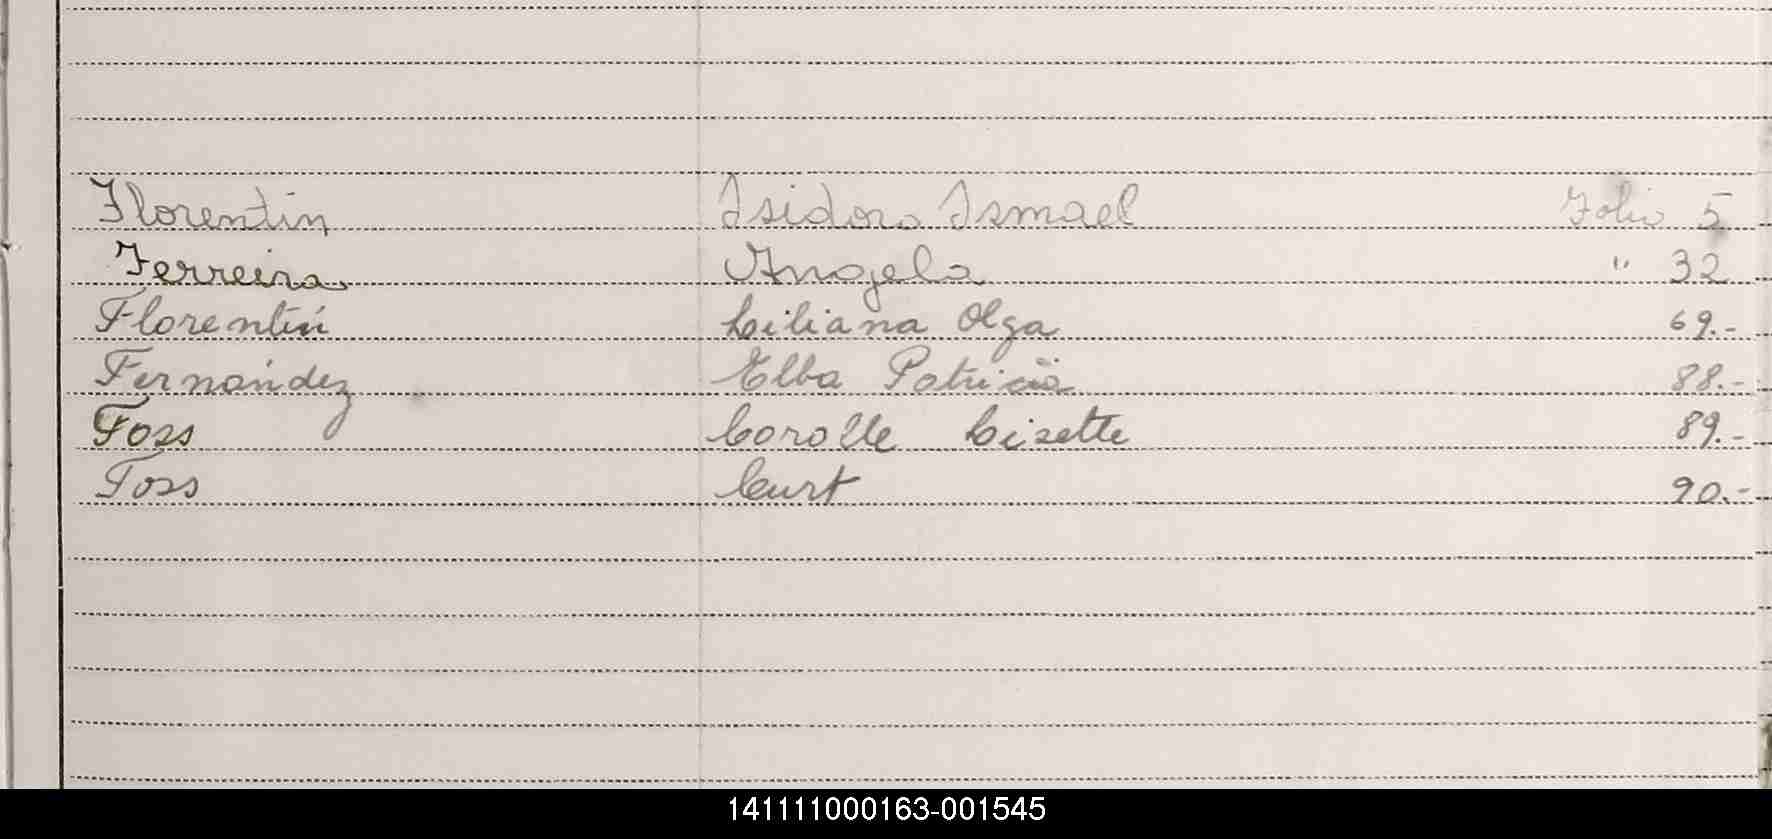 Florentín Isidora Ismael Folio 5
Ferreira Angela " 32
Florentín Liliana Olga 69.-
Fernández Elba Patricia 88.-
Foss Corolle Lisette 89.-
Foss Curt 90.-
141111000163-001545